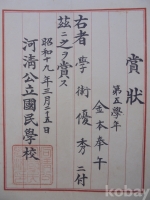 賞狀
第五學年
金本奉午
右者學術優秀ニ付
玆ニ之ヲ賞ス
昭和十九年三月二十五日
河淸公立國民學校
kobay